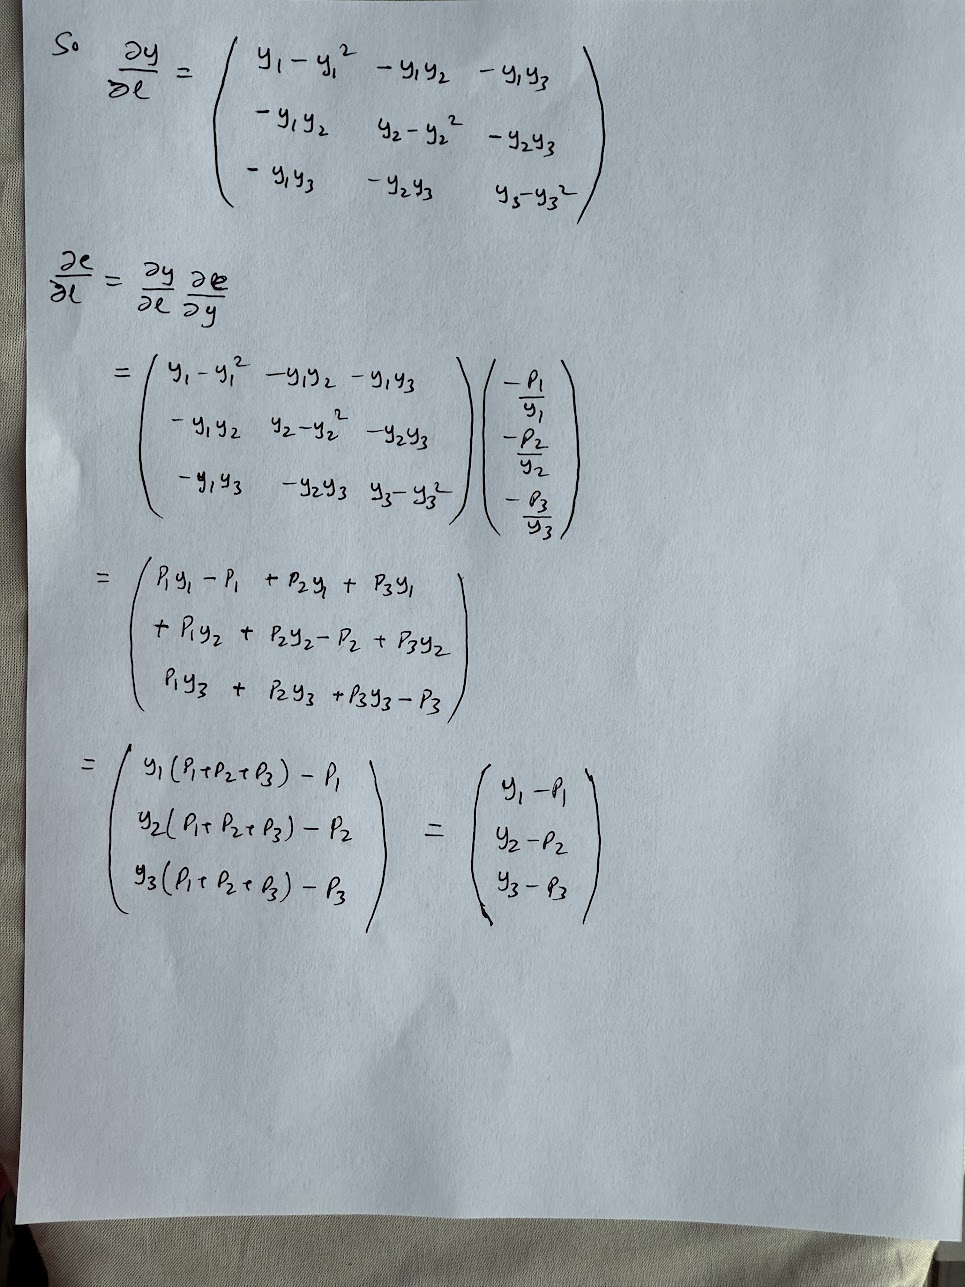 So ∂y/∂l = ( y₁ - y₁²  - y₁y₂  - y₁y₃
- y₁y₂  y₂ - y₂²  - y₂y₃
- y₁y₃  - y₂y₃  y₃ - y₃² )
∂e/∂l = ∂y/∂l ∂e/∂y
= ( y₁ - y₁²  - y₁y₂  - y₁y₃
- y₁y₂  y₂ - y₂²  - y₂y₃
- y₁y₃  - y₂y₃  y₃ - y₃² ) ( -P₁/y₁
-P₂/y₂
-P₃/y₃ )
= ( P₁y₁ - P₁ + P₂y₁ + P₃y₁
+ P₁y₂ + P₂y₂ - P₂ + P₃y₂
P₁y₃ + P₂y₃ + P₃y₃ - P₃ )
= ( y₁(P₁+P₂+P₃) - P₁
y₂(P₁+P₂+P₃) - P₂
y₃(P₁+P₂+P₃) - P₃ ) = ( y₁ - P₁
y₂ - P₂
y₃ - P₃ )